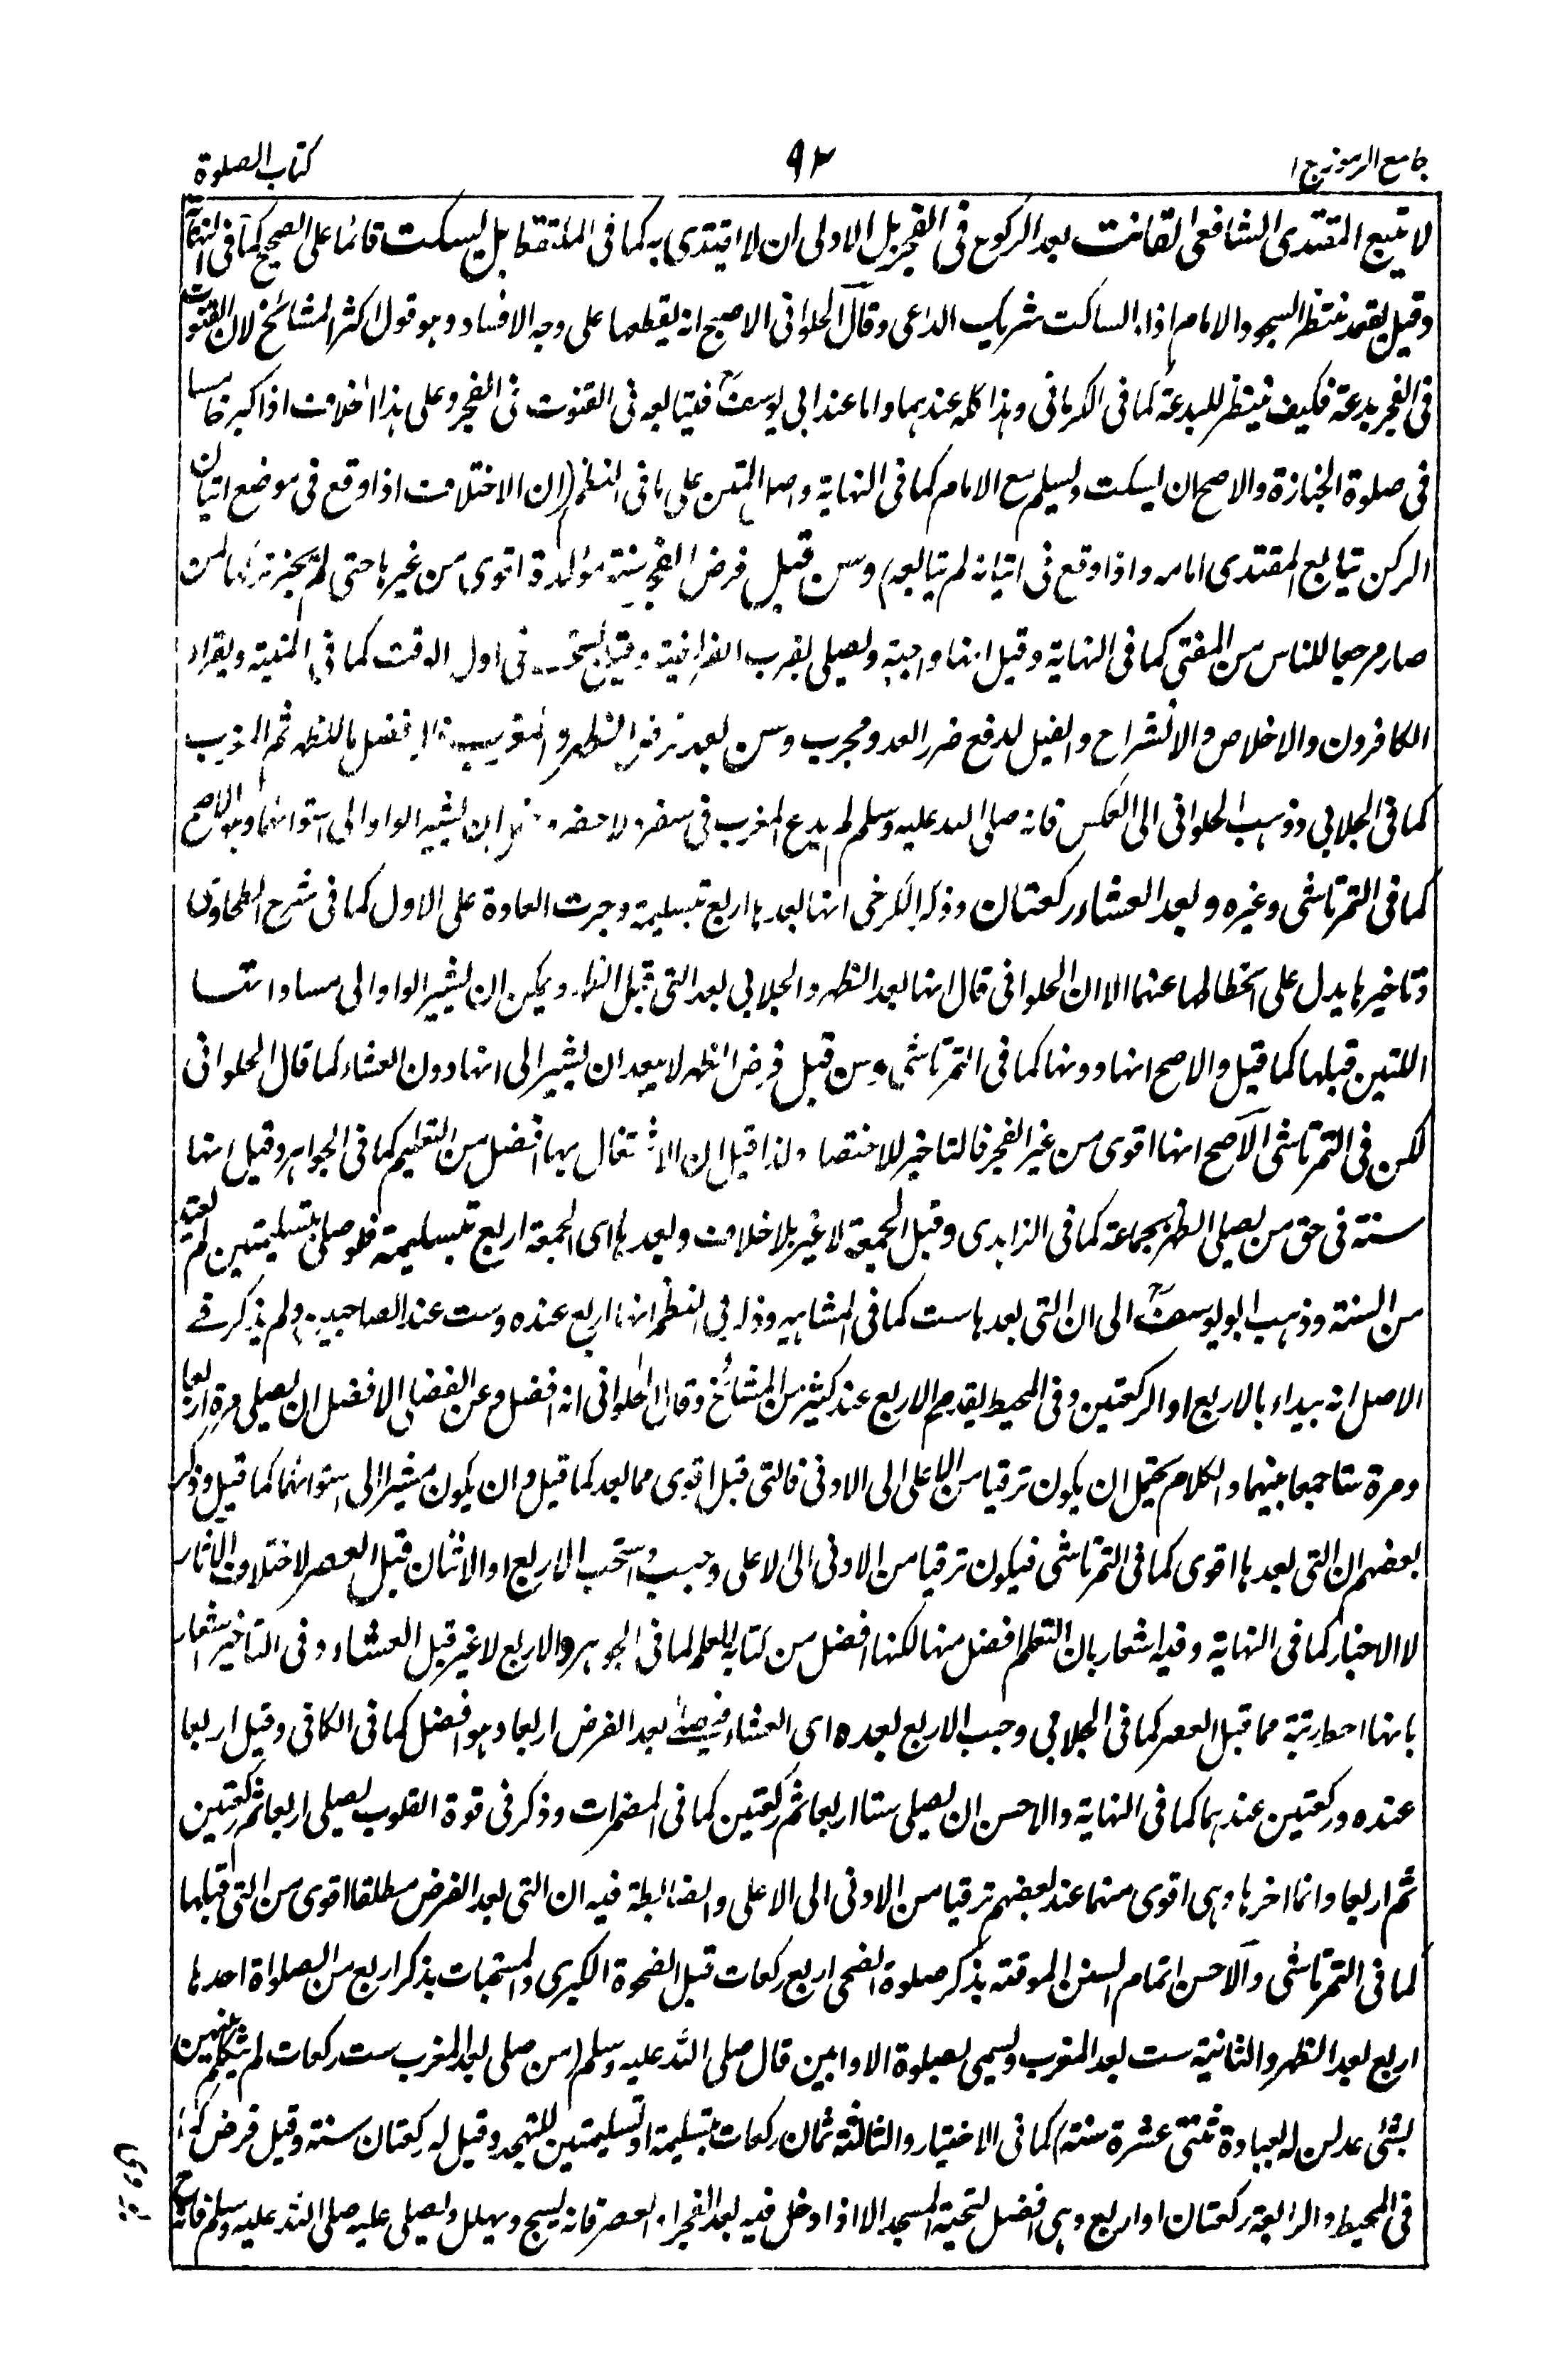 جامع الرموز ج ١
٩٣
كتاب الصلوة
لا يتبع المقتدى الشافعى القانت بعد الركوع فى الفجر بل الاولى ان لا اقتدى به كما فى الملتقط بل يسكت قائما على الصحيح كما فى النهاية
وقيل يقعد منتظر السجود الامام اذا الساكت شريك الداعى وقال الحلوانى الاصح انه يقطعها على وجه الافساد وهو قول اكثر المشائخ لان القنوت
فى الفجر بدعة فكيف ينتظر للبدعة كما فى الكرمانى وهذا كله عندهما واما عند ابى يوسف فيتابعه فى القنوت فى الفجر وعلى هذا اخلاف اذا كبر خامسا
فى صلوة الجنازة والاصح ان يسكت ويسلم مع الامام كما فى النهاية واصل المتن على ما فى النظم (ان الاختلاف اذا وقع فى موضع اتيان
الركن يتابع المقتدى امامه واذا وقع فى اتيانه لم يتابعه) وسن قبل فرض الفجر سنة مؤكدة اقوى من غيرها حتى لم يجز تركها لمن
صار مرجعا للناس من المفتى كما فى النهاية وقيل انها واجبة ويصلى بقرب الفرضية وقيل يستحب فى اول الوقت كما فى المنية ويقرأ
الكافرون والاخلاص والانشراح والفيل لدفع ضرر العدو مجرب وسن بعد فرض الظهر والمغرب فالافضل ما للظهر ثم المغرب
كما فى الجلابى وذهب الحلوانى الى العكس فانه صلى الله عليه وسلم لم يدع المغرب فى سفر ولا حضر ان يشير الواو الى استوائهما وهو الاصح
كما فى التمرتاشى وغيره وبعد العشاء ركعتان وذكر الكرخى انها بعدها اربع بتسليمة وجرت العادة على الاول كما فى شرح الطحاوى
وتاخيرها يدل على انحطاطها عنهما الا ان الحلوانى قال انها بعد الظهر والجلابى بعد التى قبل الظهر ويمكن ان يشير الواو الى مساواتها
اللتين قبلها كما قيل والاصح انها دونها كما فى التمرتاشى وسن قبل فرض الظهر لا يبعد ان يشير الى انها دون العشاء كما قال الحلوانى
لكن فى التمرتاشى الاصح انها اقوى من غير الفجر فالتاخير للاختصار ولذا قيل ان الاشتغال بها افضل من التعليم كما فى الجواهر وقيل انها
سنة فى حق من يصلى الظهر بجماعة كما فى الزاهدى وقبل الجمعة لا غير بلا خلاف وبعدها اى الجمعة اربع بتسليمة فلو صلى بتسليمتين لم يعتد
من السنة وذهب ابو يوسف الى ان التى بعدها ست كما فى المشاهير وذكر فى النظم انها اربع عنده وست عند الصاحبين ولم يذكر فى
الاصل انه يبداء بالاربع او الركعتين وفى المحيط يقدم الاربع عند كثير من المشائخ وقال الحلوانى انه افضل وعن الفضلى الافضل ان يصلى مرة اربعا
ومرة ستا جمعا بينهما والكلام يحتمل ان يكون ترقيا من الاعلى الى الادنى فالتى قبل اقوى مما بعد كما قيل وان يكون مشيرا الى استوائهما كما قيل وذكر
بعضهم ان التى بعدها اقوى كما فى التمرتاشى فيكون ترقيا من الادنى الى الاعلى وحبب واستحب الاربع او الاثنان قبل العصر لاختلاف الاثار
لا الاخبار كما فى النهاية وفيه اشعار بان التعلم افضل منها لكنها افضل من كتابة العلم كما فى الجوهر والاربع لا غير قبل العشاء وفى التاخير اشعار
بانها احط رتبة مما قبل العصر كما فى الجلابى وحبب الاربع بعده اى العشاء فيصلى بعد الفرض اربعا وهو افضل كما فى الكافى وقيل اربعا
عنده وركعتين عندهما كما فى النهاية والاحسن ان يصلى ستا اربعا ثم ركعتين كما فى المضمرات وذكر فى قوة القلوب يصلى اربعا ثم ركعتين
ثم اربعا وانما اخرها وهى اقوى منهما عند بعضهم ترقيا من الادنى الى الاعلى والضابطة فيه ان التى بعد الفرض مطلقا اقوى من التى قبلها
كما فى التمرتاشى والاحسن اتمام السنن الموقتة بذكر صلوة الضحى اربع ركعات قبل الضحوة الكبرى والمستحبات بذكر اربع من الصلواة احدها
اربع بعد الظهر والثانية ست بعد المغرب ويسمى بصلوة الاوابين قال صلى الله عليه وسلم (من صلى بعد المغرب ست ركعات لم يتكلم بينهن
بشئ عدلن له بعبادة ثنتى عشرة سنة) كما فى الاختيار والثالثة ثمان ركعات بتسليمة او تسليمتين للتهجد وقيل له ركعتان سنة وقيل فرض كما
فى المحيط والرابعة ركعتان او اربع وهى افضل لتحية المسجد الا اذا دخل فيه بعد الفجر او العصر فانه يسبح ويهلل ويصلى عليه صلى الله عليه وسلم فانه